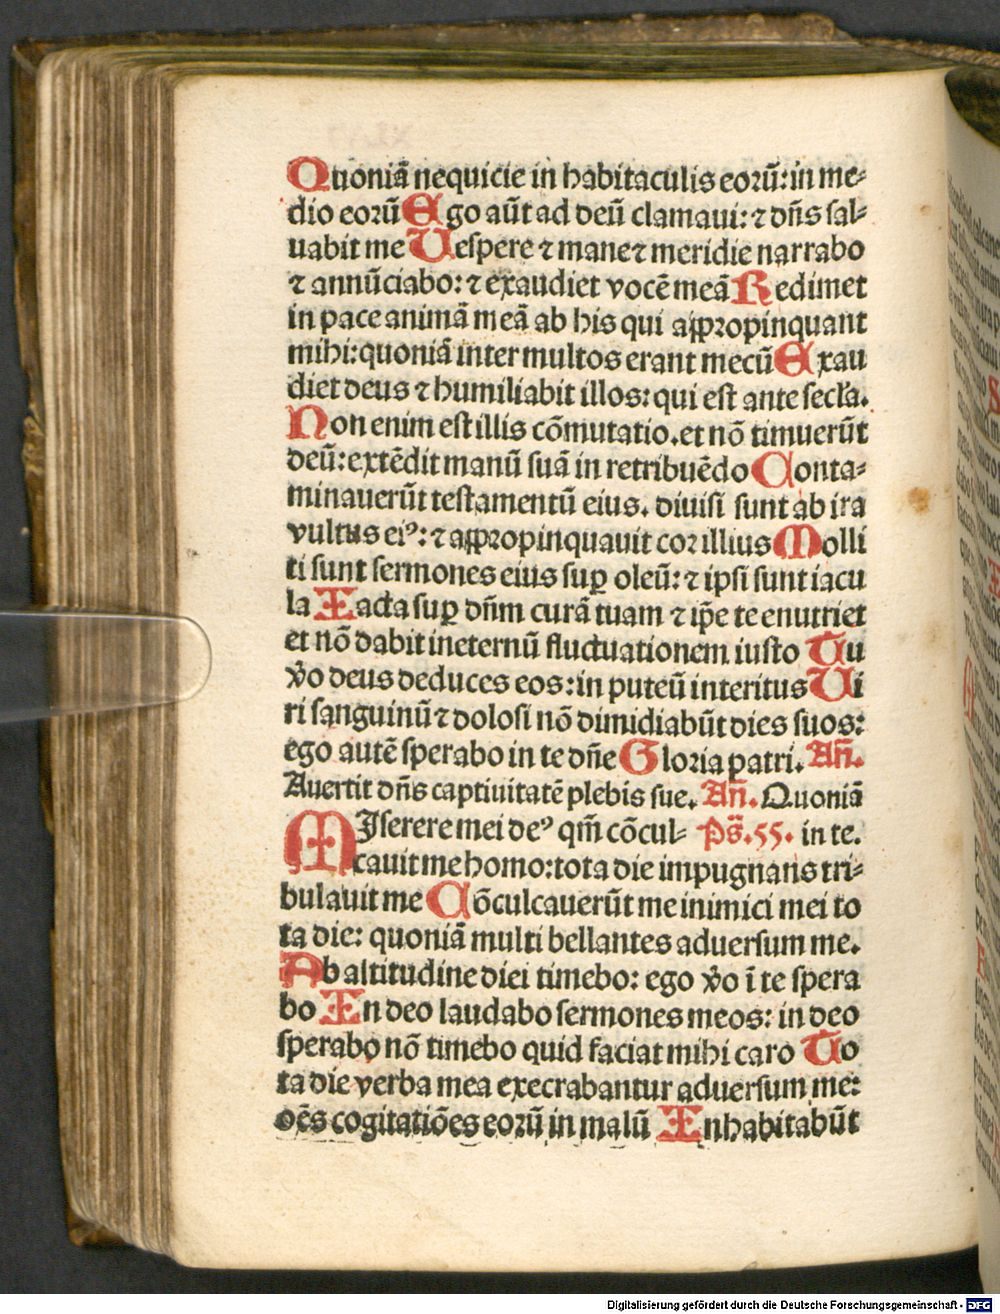 Quoniā nequicie in habitaculis eoꝛū: in me⸗
dio eoꝛū Ego aūt ad deū clamaui: ⁊ dn̄s sal⸗
uabit me Uespere ⁊ mane ⁊ meridie narrabo
⁊ annūciabo: ⁊ exaudiet vocē meā Redimet
in pace animā meā ab his qui appꝛopinquant
mihi: quoniā inter multos erant mecū Exau
diet deus ⁊ humiliabit illos: qui est ante secl'a.
Non enim est illis cōmutatio. et nō timuerūt
deū: extēdit manū suā in retribuēdo Conta⸗
minauerūt testamentū eius. diuisi sunt ab ira
vultus eiꝰ: ⁊ appꝛopinquauit coꝛ illius Molli
ti sunt sermones eius suꝑ oleū: ⁊ ipsi sunt iacu
la Iacta suꝑ dn̄m curā tuam ⁊ ip̄e te enutriet
et nō dabit in eternū fluctuationem iusto Tu
v̊o deus deduces eos: in puteū interitus Ui
ri sanguinū ⁊ dolosi nō dimidiabūt dies suos:
ego autē sperabo in te dn̄e Gloꝛia patri. An̄.
Auertit dn̄s captiuitatē plebis sue. An̄. Quoniā
MIserere mei deꝰ qm̄ cōcul⸗ Ps̄. 55. in te.
cauit me homo: tota die impugnans tri⸗
bulauit me Cōculcauerūt me inimici mei to
ta die: quoniā multi bellantes aduersum me.
Ab altitudine diei timebo: ego v̊o ī te spera
bo In deo laudabo sermones meos: in deo
sperabo nō timebo quid faciat mihi caro To
ta die verba mea execrabantur aduersum me:
oēs cogitatiōes eoꝛū in malū Inhabitabūt
Digitalisierung gefördert durch die Deutsche Forschungsgemeinschaft - DFG